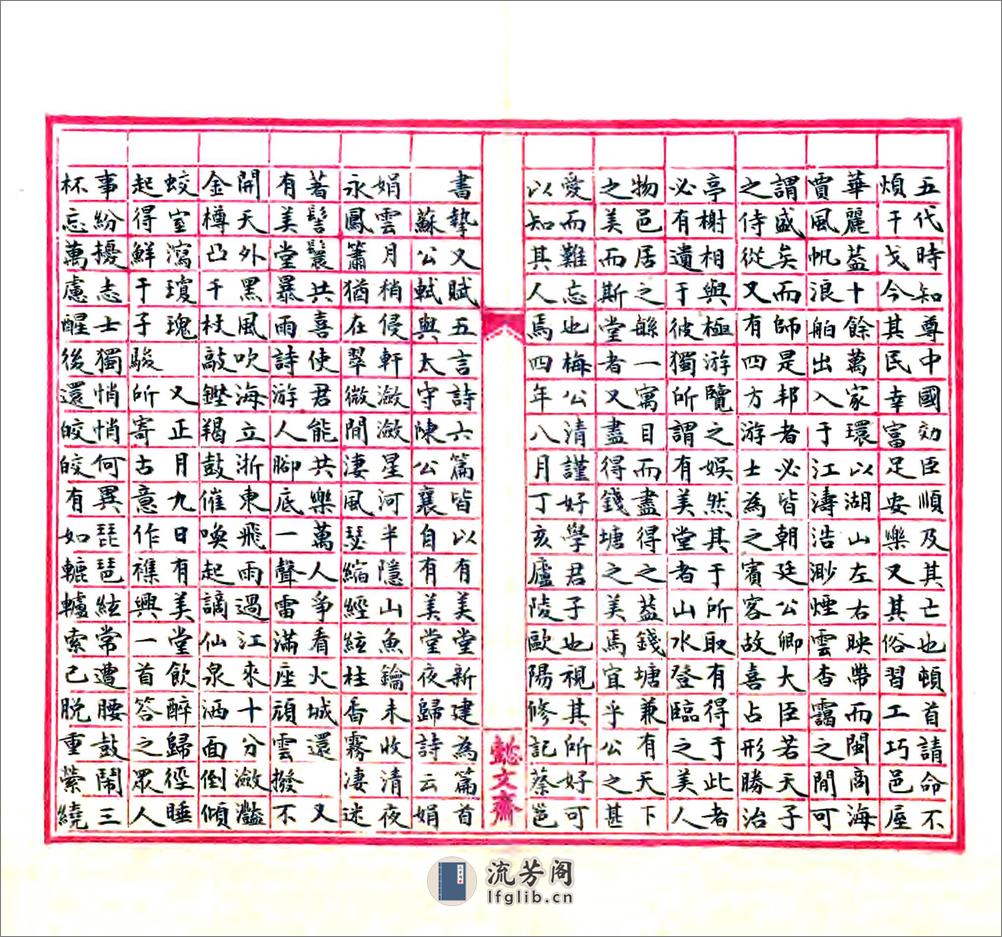 五代時知尊中國効臣順及其亡也頓首請命不
煩干戈今其民幸富足安樂又其俗習工巧邑屋
華麗蓋十餘萬家環以湖山左右映帶而閩商海
賈風帆浪舶出入于江濤浩渺煙雲杳靄之間可
謂盛矣而師是邦者必皆朝廷公卿大臣若天子
之侍從又有四方游士為之賓客故喜占形勝治
亭榭相與極游覽之娛然其于所取有得于此者
必有遺于彼獨所謂有美堂者山水登臨之美人
物邑居之緐一寓目而盡得之蓋錢塘兼有天下
之美而斯堂者又盡得錢塘之美焉宜乎公之甚
愛而難忘也梅公清謹好學君子也視其所好可
以知其人焉四年八月丁亥廬陵歐陽修記蔡邕
懿文齋
書摯又賦五言詩六篇皆以有美堂新建為篇首
蘇公軾與太守陳公襄自有美堂夜歸詩云娟
娟雲月梢侵軒瀲瀲星河半隱山魚鑰未收清夜
永鳳簫猶在翠微間淒風瑟縮經絃柱香霧凄迷
著髻鬟共喜使君能共樂萬人爭看火城還 又
有美堂暴雨詩游人腳底一聲雷滿座頑雲撥不
開天外黑風吹海立浙東飛雨過江來十分瀲灩
金樽凸千杖敲鏗羯鼓催喚起謫仙泉洒面倒傾
蛟室瀉瓊瑰 又正月九日有美堂飲醉歸徑睡
起得鮮于子駿所寄古意作襍興一首答之眾人
事紛擾志士獨悄悄何異琵琶絃常遭腰鼓鬧三
杯忘萬慮醒後還皎皎有如轆轤索已脫重縈繞
流芳阁
lfglib.cn